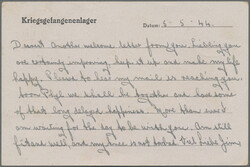 Kriegsgefangenenlager
Datum: 5. 5. 44.
Dearest Another welcome letter from you. Darling you
are certainly improving, keep it up and make my life
happy. Please to hear my mail is reaching you.
Soon Phyl we shall be together and have some
of that long delayed happiness. More than ever I
am waiting for the day to be with you. Am still
fit and well, and my knee is not